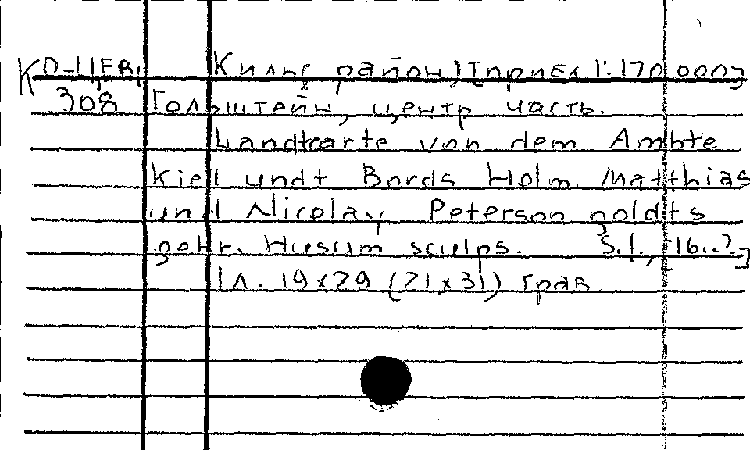 Киль, район, [прибл 1:170 000]
308 Гольштейн, центр часть.
Landkarte von dem Ambte
Kiell undt Bords Holm. Matthias
und Nicolay Peterson goldts
gehr. Husum sculps. S.l., [16..?]
1 л. 19x29 (21x31) грав